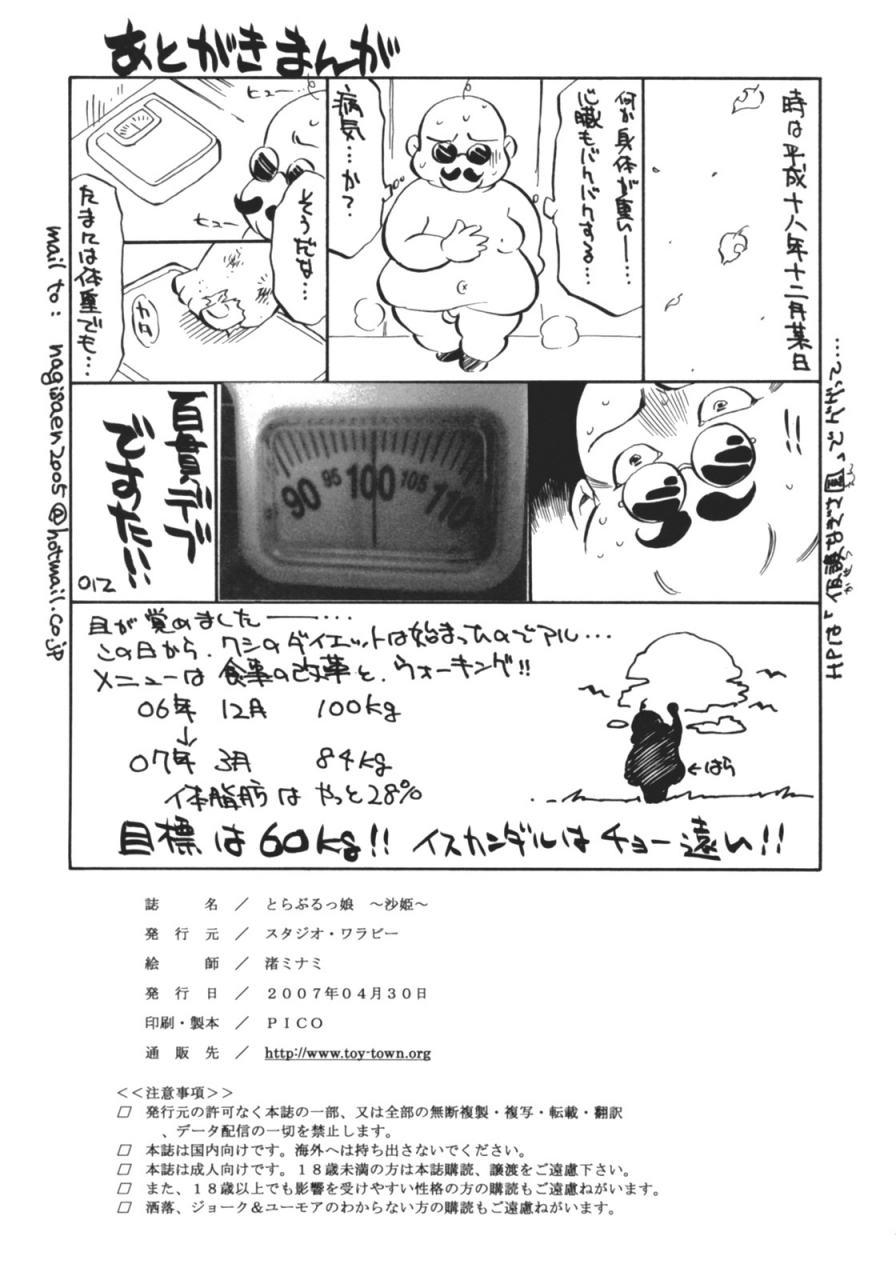 あとがきまんが
時は平成十八年十二月某日
何か身体が重いー…
心臓もバクバクする…
病気…か？
ヒュー…
そうだな…
ヒュー
たまには体重でも…
カタ
!!
90 95 100 105 110
百貫デブ
ですた!!!
012
目が覚めました――…
この日から、ワシのダイエットは始まったのでアル…
メニューは 食事の改革と、ウォーキング!!
06年 12月 100kg
↓
07年 3月 84kg
体脂肪は やっと28%
←はら
目標は60kg!! イスカンダルは チョー遠い!!
mail to: nagisaen2005@hotmail.co.jp
HPは
誌　名 ／ とらぶるっ娘　～沙姫～
発 行 元 ／ スタジオ・ワラビー
絵　師 ／ 渚ミナミ
発 行 日 ／ ２００７年０４月３０日
印刷・製本 ／ ＰＩＣＯ
通 販 先 ／ http://www.toy-town.org
＜＜注意事項＞＞
□ 発行元の許可なく本誌の一部、又は全部の無断複製・複写・転載・翻訳
、データ配信の一切を禁止します。
□ 本誌は国内向けです。海外へは持ち出さないでください。
□ 本誌は成人向けです。１８歳未満の方は本誌購読、譲渡をご遠慮下さい。
□ また、１８歳以上でも影響を受けやすい性格の方の購読もご遠慮ねがいます。
□ 洒落、ジョーク＆ユーモアのわからない方の購読もご遠慮ねがいます。